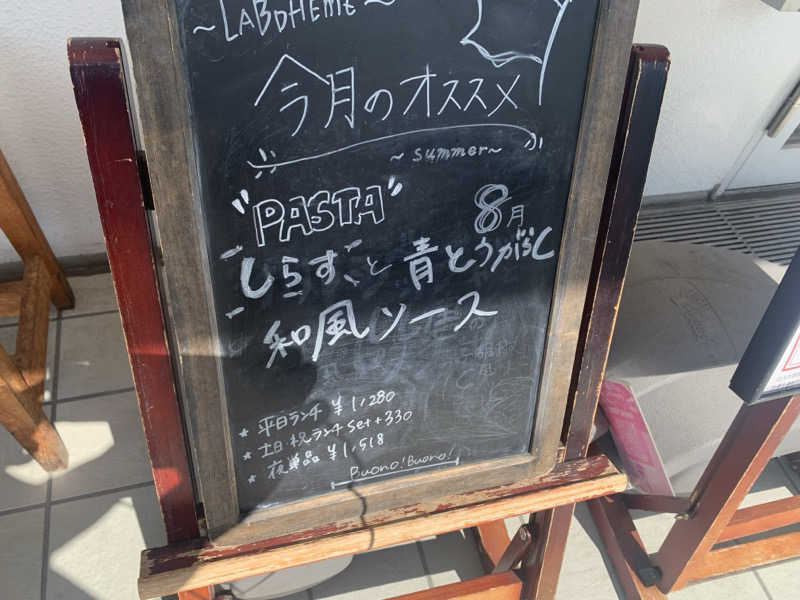 ~LABOHEME~
今月のオススメ
~summer~
"PASTA" 8月
しらすと青とうがらし
和風ソース
★ 平日ランチ ¥1,280
★ 土日・祝ランチset+330
★ 夜単品 ¥1,518
Buono! Buono!